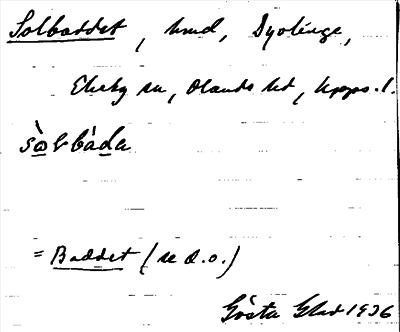 Solbaddet, hmd, Dyotinge,
Ekeby sn, Olands hd, Upps. l.
sòlbàda
= Baddet (se d.o.)
Gösta Glad 1936